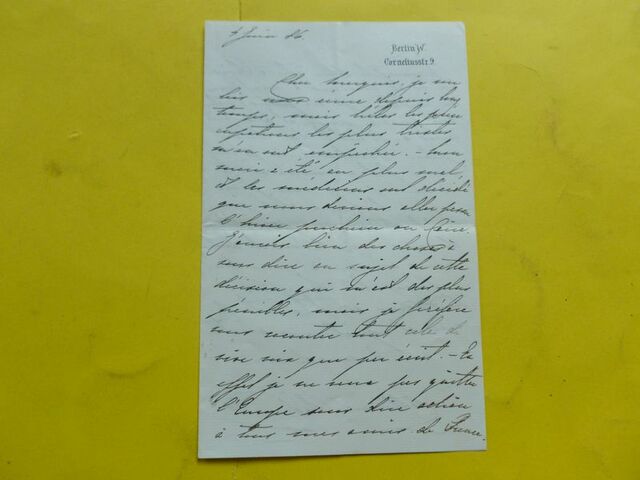 4 Juin 86.
Berlin W.
Corneliusstr. 9.
Cher marquis, je
depuis long
temps, mais hélas les préoc
cupations les plus tristes
m'en ont empêchée. – mon
mari a été au plus mal,
et les médecins ont décidé
que nous devions aller passer
l'hiver prochain au Caire.
J'aurais bien des choses à
vous dire au sujet de cette
décision qui m'est des plus
pénibles, mais je préfère
vous raconter tout cela de
vive voix que par écrit. – En
effet je ne veux pas quitter
l'Europe sans dire adieu
à tous mes amis de France.